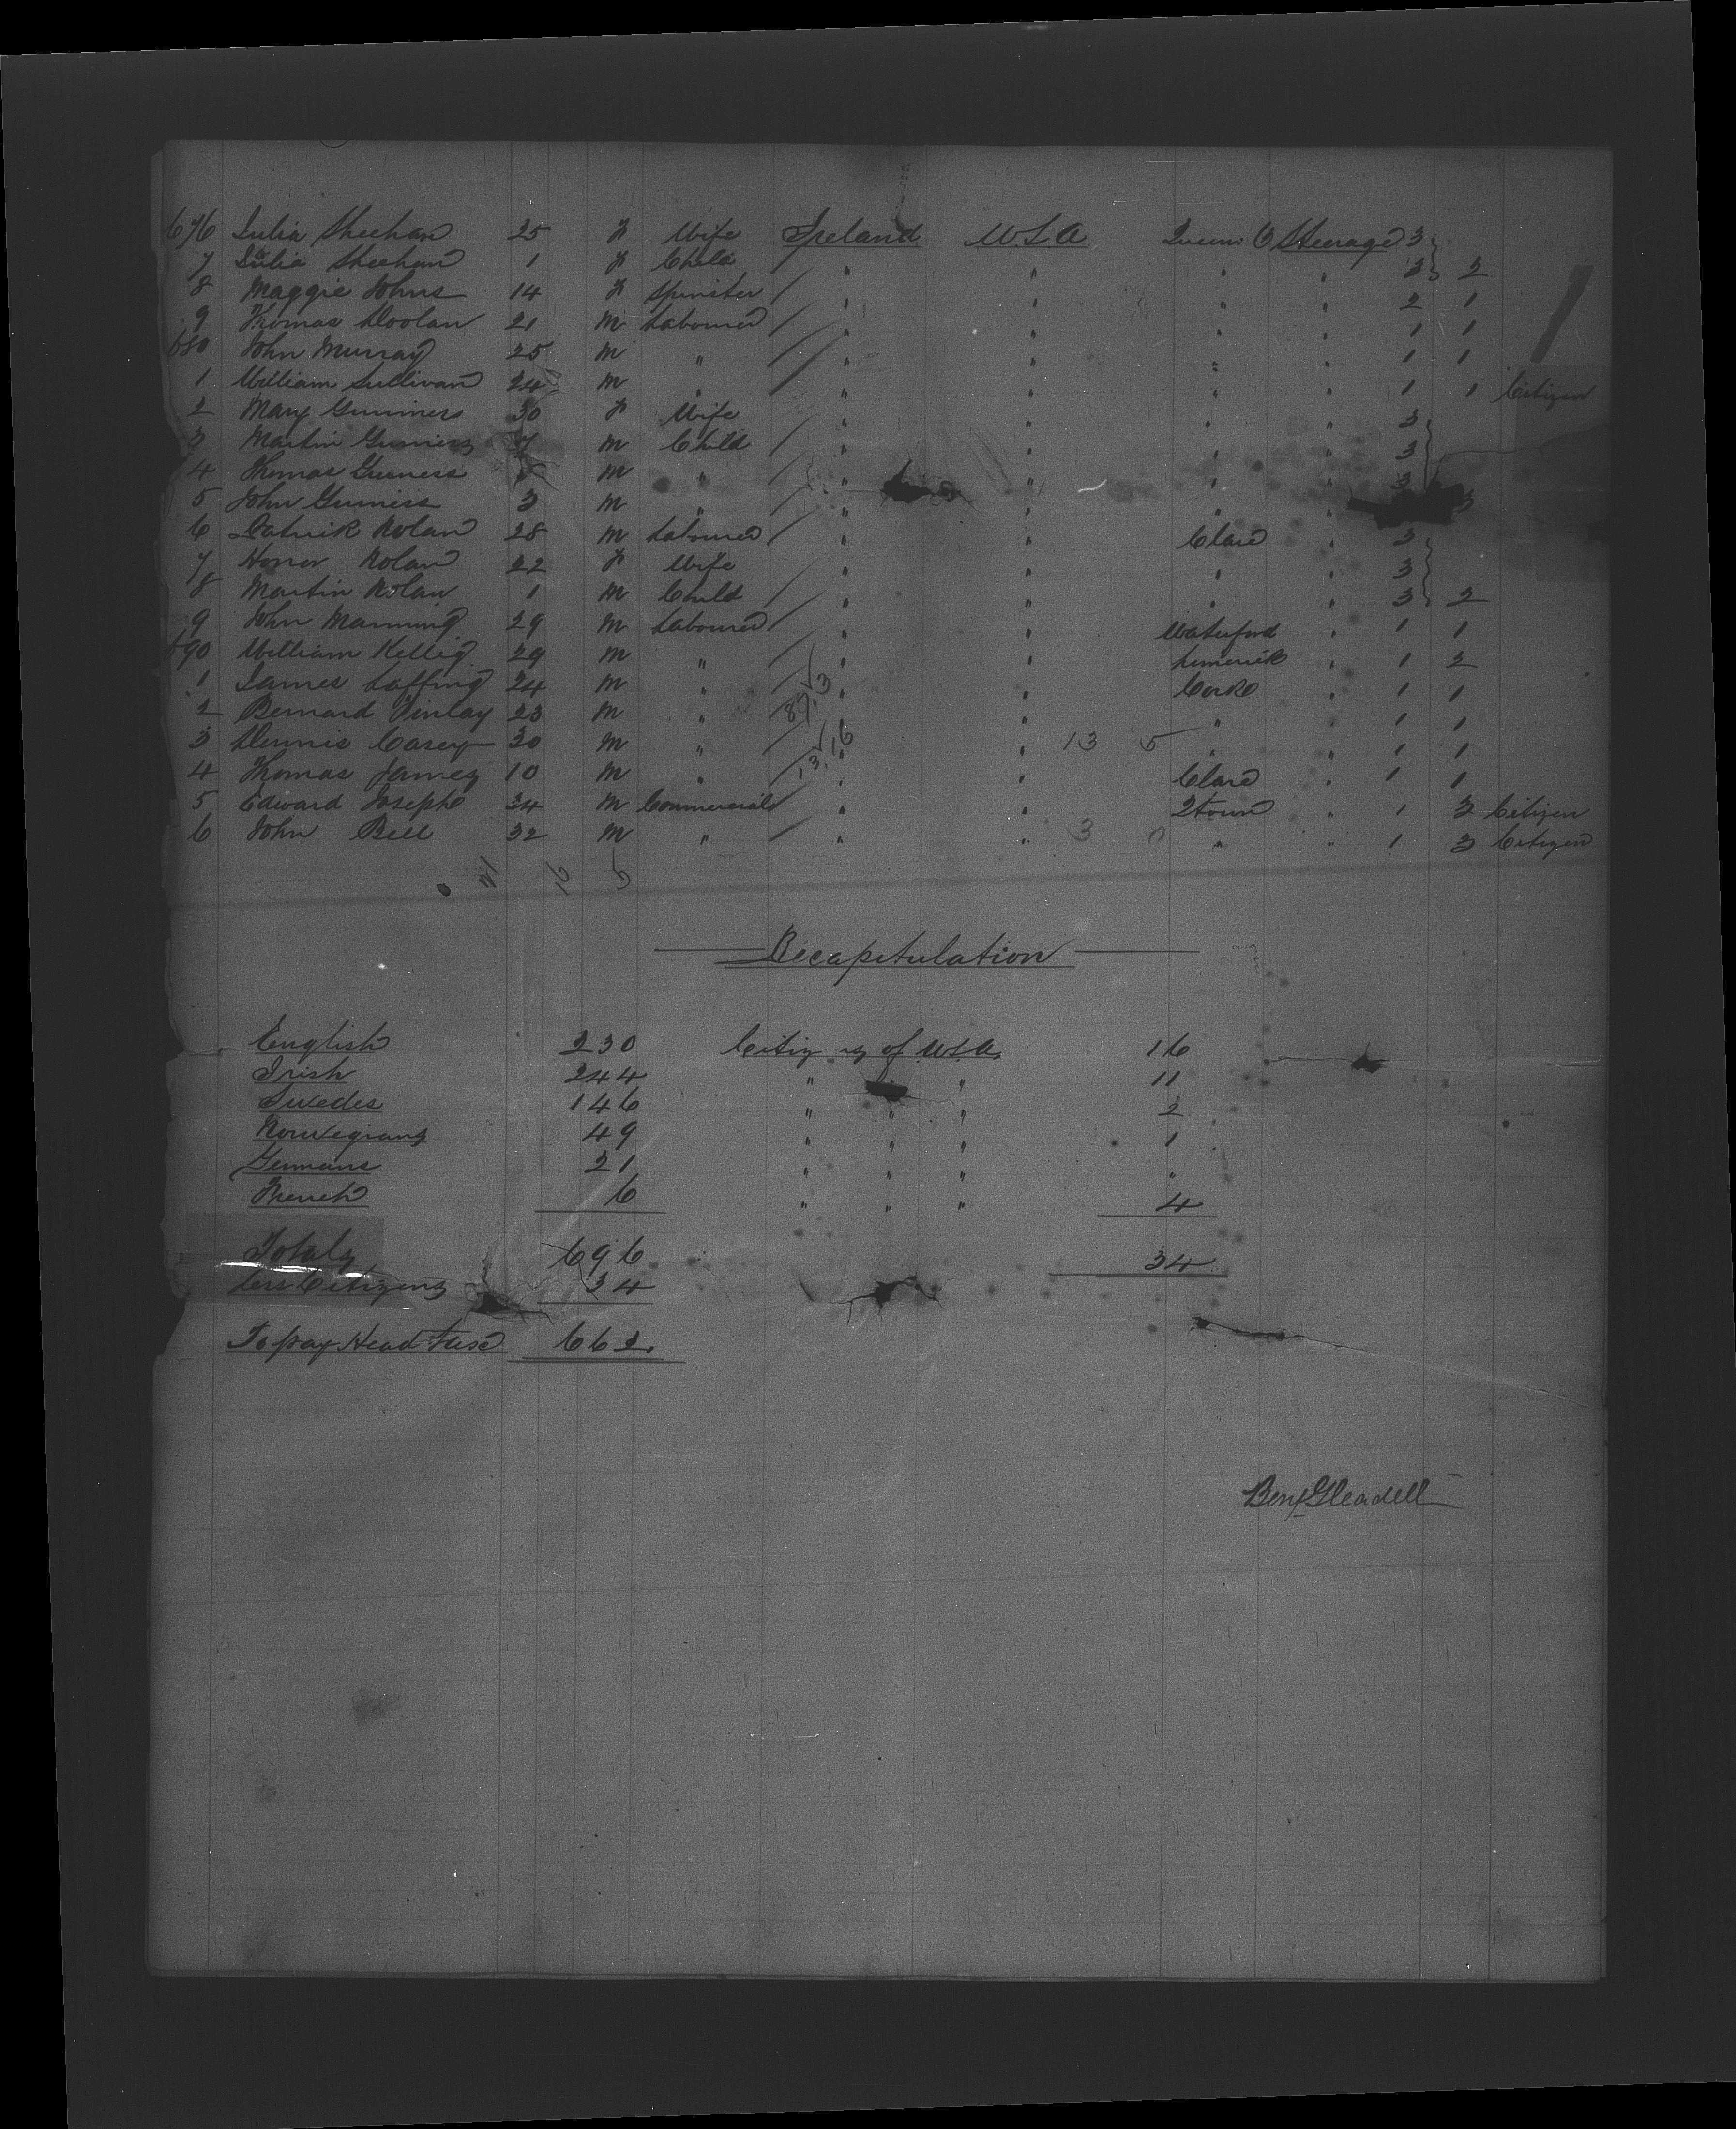 676 Julia Sheehan 25 F Wife Ireland U.S.A Queens Co Steerage 3
7 Julia Sheehan 1 F Child " " " " 3 2
8 Maggie Johns 14 F Spinster " " " " 2 1
9 Thomas Doolan 21 M Labourer " " " " 1 1
680 John Murray 25 M " " " " " 1 1
1 William Sullivan 24 M " " " " " 1 1 Citizen
2 Mary 30 F Wife " " " " 3
3 Martin 7 M Child " " " " 3
4 Thomas M " " " " " 3
5 John 3 M " " " " " 3
6 Patrick Nolan 28 M Labourer " " Clare " 3
7 Honor Nolan 22 F Wife " " " " 3
8 Martin Nolan 1 M Child " " " " 3 2
9 John Manning 29 M Labourer " " Waterford " 1 1
690 William 29 M " " " Limerick " 1 2
1 James 24 M " " " Cork " 1 1
2 Bernard Finlay 23 M " " " " " 1 1
3 Dennis Casey 30 M " " " 13 5 " " 1 1
4 Thomas 10 M " " " Clare " 1 1
5 Edward Joseph 34 M Commercial " " 2town " 1 3 Citizen
6 John Bell 32 M " " " 3 0 " " 1 3 Citizen
Recapitulation
English 230 Citizens of U.S.A. 16
Irish 244 " " " 11
Swedes 146 " " " 2
Norwegians 49 " " " 1
Germans 21 " " " "
French 6 " " " 4
Totals 696 34
Less Citizens 34
To pay Head Tax 662.
Benj Gleadell